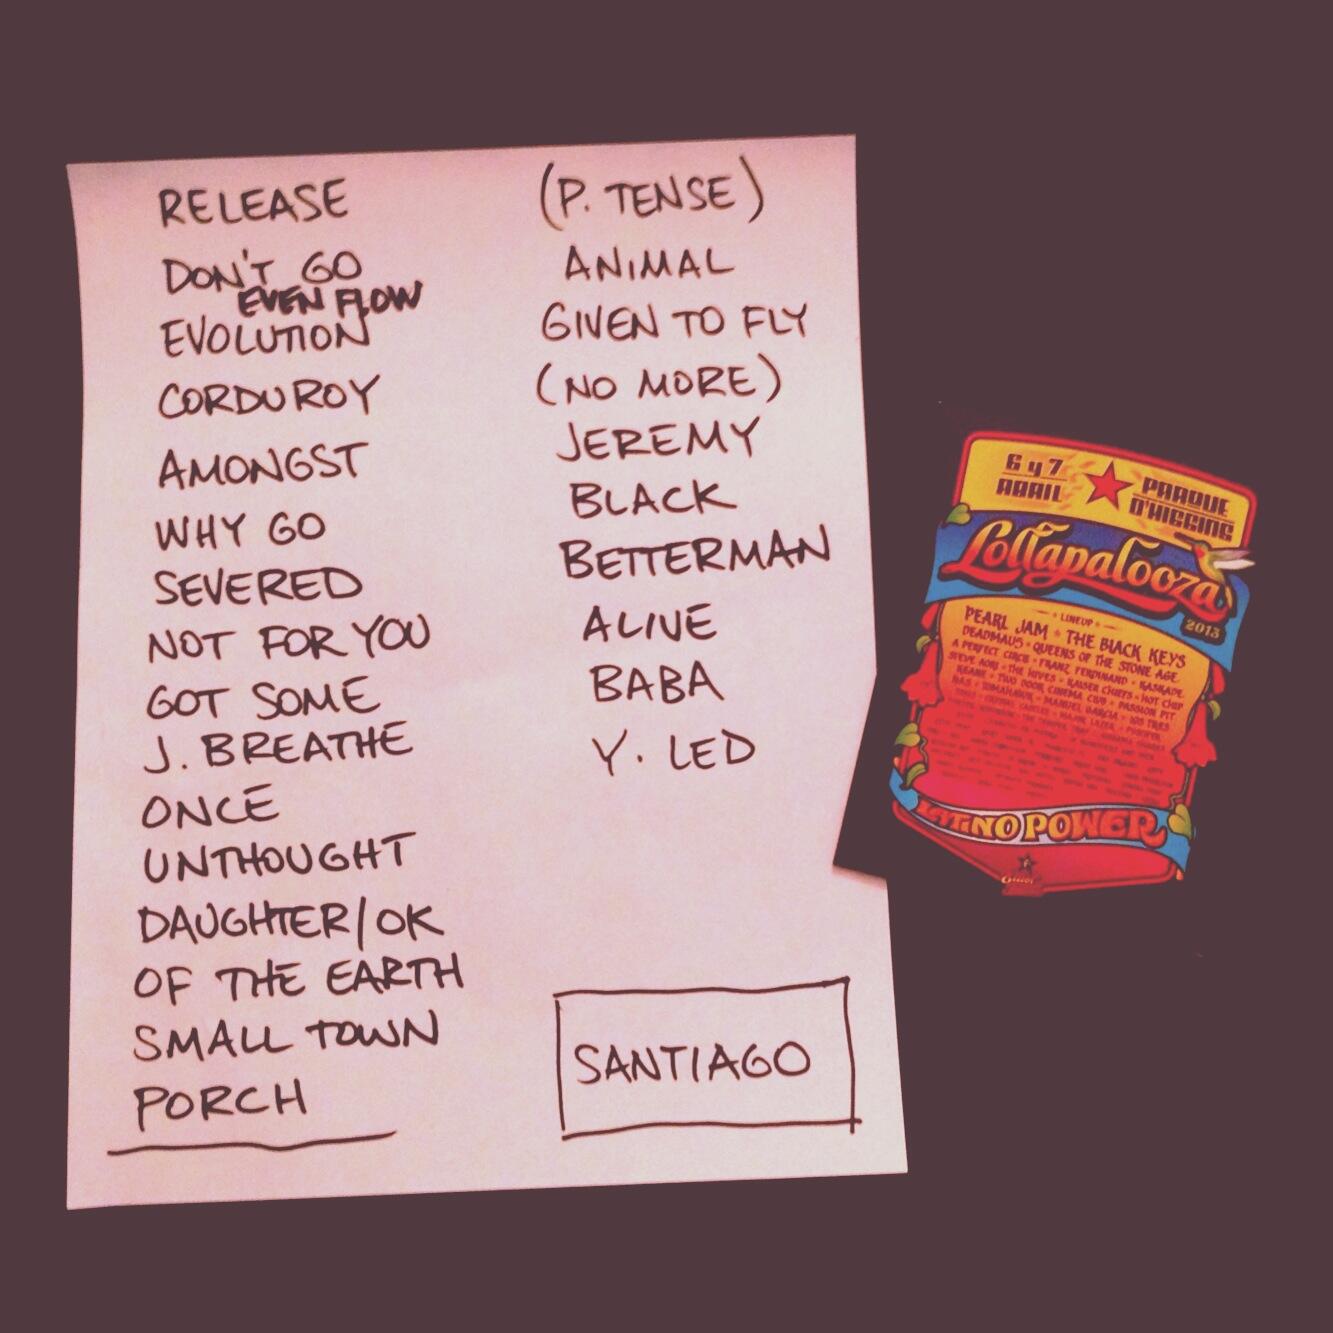 RELEASE
DON'T GO
EVEN FLOW
EVOLUTION
CORDUROY
AMONGST
WHY GO
SEVERED
NOT FOR YOU
GOT SOME
J. BREATHE
ONCE
UNTHOUGHT
DAUGHTER/OK
OF THE EARTH
SMALL TOWN
PORCH
(P. TENSE)
ANIMAL
GIVEN TO FLY
(NO MORE)
JEREMY
BLACK
BETTERMAN
ALIVE
BABA
Y. LED
SANTIAGO
6 y 7
ABRIL
PARQUE
O'HIGGINS
Lollapalooza
2013
LINEUP
PEARL JAM ★ THE BLACK KEYS
DEADMAU5 • QUEENS OF THE STONE AGE
A PERFECT CIRCLE • FRANZ FERDINAND • KASKADE
STEVE AOKI • THE HIVES • KAISER CHIEFS • HOT CHIP
KEANE • TWO DOOR CINEMA CLUB • PASSION PIT
NAS • TOMAHAWK • MANUEL GARCIA • LOS TRES
LATINO POWER